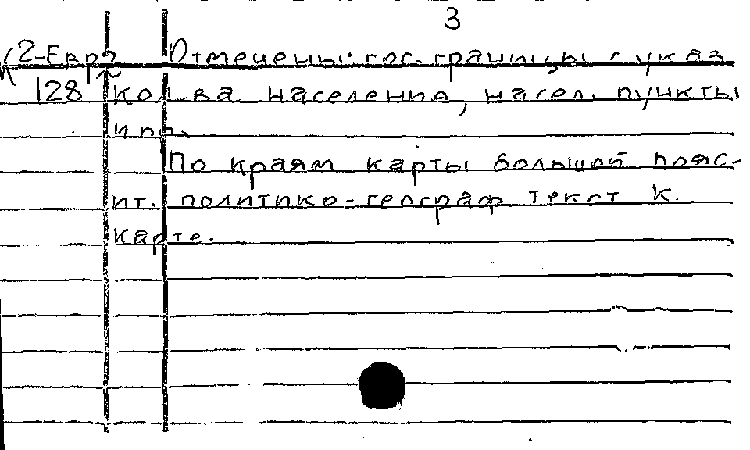 3
К 2-Евр Отмечены: гос. границы с указ.
128 кол-ва населения, насел. пункты
и пр.
По краям карты большой пояс-
нит. политико-географ. текст к
карте.